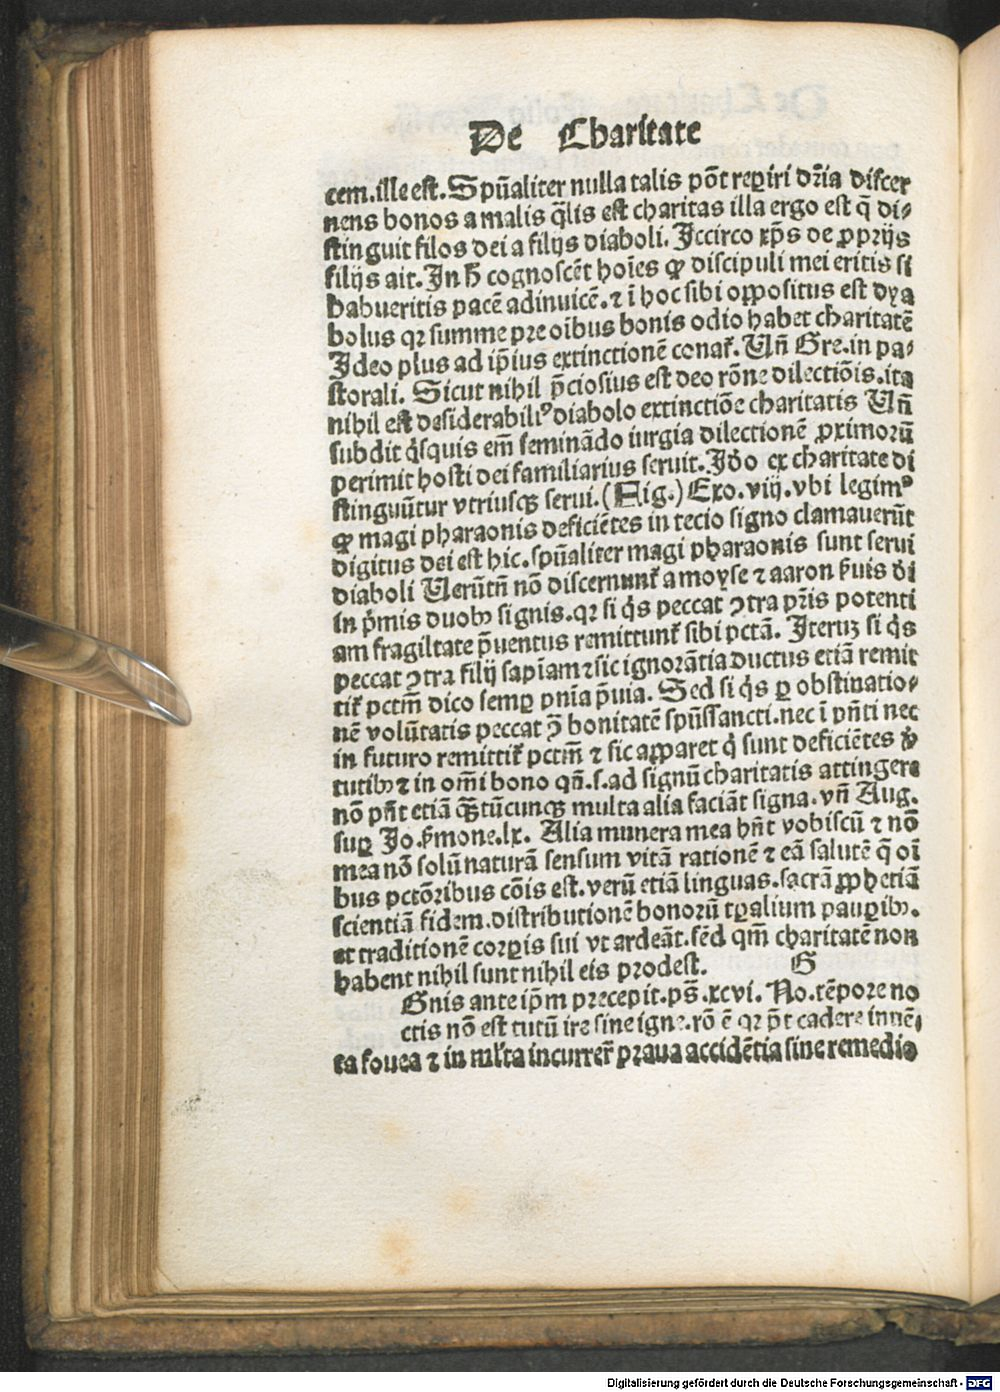 De Charitate
cem.ille est. Spũaliter nulla talis põt reꝑiri dr̃ia discer
nens bonos a malis q̃lis est charitas illa ergo est q̃ di-
stinguit filos dei a filijs diaboli. Iccirco xp̃s de ꝓprijs
filijs ait. In h̃ cognoscẽt hoĩes ꝙ discipuli mei eritis si
habueritis pacẽ adinuicẽ. ⁊ ĩ hoc sibi oppositus est dya
bolus qꝛ summe pre oĩbus bonis odio habet charitatẽ
Ideo plus ad ip̃ius extinctionẽ conat̃. Uñ Gre. in pa-
storali. Sicut nihil p̃ciosius est deo rõne dilectiõis. ita
nihil est desiderabiliꝰ diabolo extinctiõe charitatis Uñ
subdit q̇squis em̃ seminãdo iurgia dilectionẽ ꝓximorũ
perimit hosti dei familiarius seruit. Iđo ex charitate di
stinguũtur vtriusqꝫ serui. (Fig.) Exo. viij. vbi legimꝰ
ꝙ magi pharaonis deficiẽtes in tecio signo clamauerũt
digitus dei est hic. spũaliter magi pharaonis sunt serui
diaboli Uerũtñ nõ discernunt̃ a moyse ⁊ aaron ẜuis đi
in p̃mis duobꝫ signis. qꝛ si q̇s peccat ꝯtra pr̃is potenti
am fragiltate p̃uentus remittunt̃ sibi pctã. Iteruꝫ si q̇s
peccat ꝯtra filij sapĩam ⁊ sic ignorãtia ductus etiã remit
tit̃ pctm̃ dico semꝑ pnĩa p̃uia. Sed si q̇s ꝑ obstinatio-
nẽ volũtatis peccat ꝯ̃ bonitatẽ spũssancti. nec ĩ pñti nec
in futuro remittit̃ pctm̃ ⁊ sic apparet q̇ sunt deficiẽtes v̓
tutibꝫ ⁊ in om̃i bono qñ. s. ad signũ charitatis attingere
nõ pñt etiã q̃tũcunqꝫ multa alia faciãt signa. vñ Aug.
suꝑ Jo. ẜmone. lx. Alia munera mea hñt vobiscũ ⁊ nõ
mea nõ solũ naturã sensum vitã rationẽ ⁊ eã salutẽ q̃ oĩ
bus pctõribus cõis est. verũ etiã linguas. sacrã ꝓphetiã
scientiã fidem. distributionẽ bonorũ tꝑalium pauꝑibꝫ.
et traditionẽ corꝑis sui vt ardeãt. sẽd qm̃ charitatẽ non
habent nihil sunt nihil eis prodest. G
Gnis ante ip̃m precepit. ps̃. xcvi. No. tẽpore no
ctis nõ est tutũ ire sine igne. rõ ẽ qꝛ põt cadere in uẽ,
ta fouea ⁊ in ml̃ta incurrer̃ praua accidẽtia sine remedio
Digitalisierung gefördert durch die Deutsche Forschungsgemeinschaft - DFG